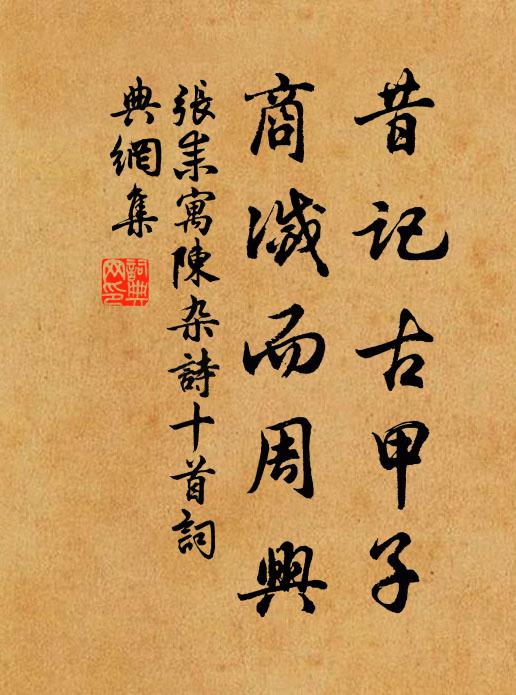 昔记古甲子
商滅而周興
張耒寓陳杂詩十首詞
典網集
詞典
网印